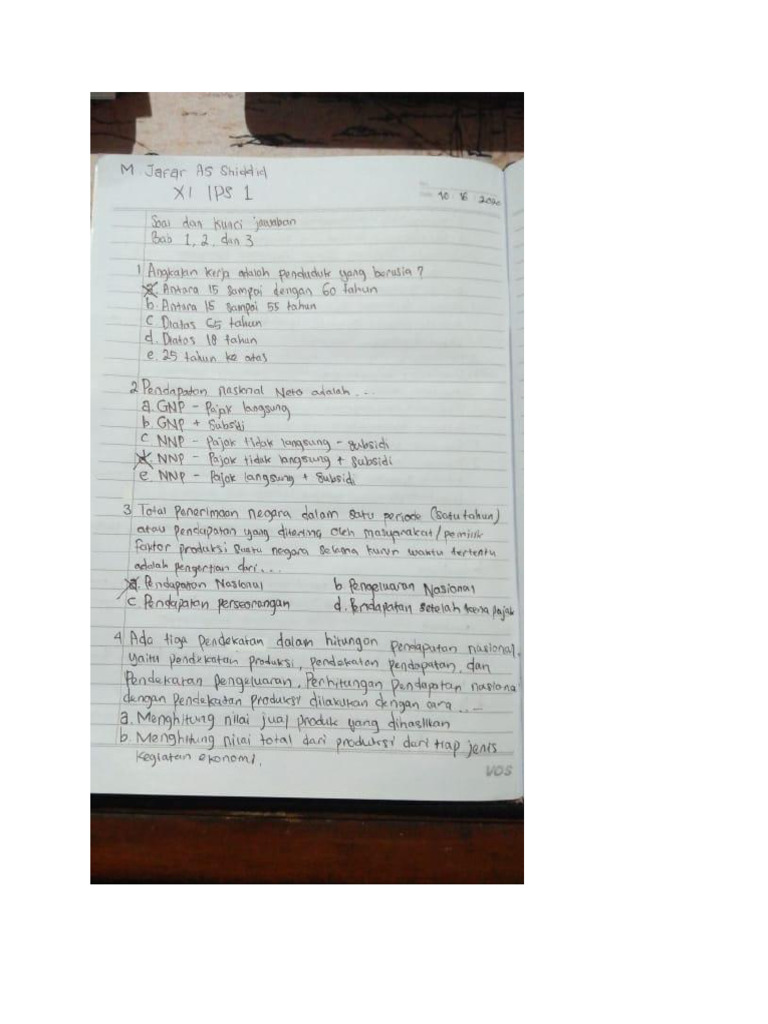 M. Jafar As Shiddid
XI IPS 1
10 16 2020
Soal dan kunci jawaban
Bab 1, 2, dan 3
1 Angkatan kerja adalah penduduk yang berusia?
a. Antara 15 sampai dengan 60 tahun
b. Antara 15 sampai 55 tahun
c. Diatas 65 tahun
d. Diatas 18 tahun
e. 25 tahun ke atas
2 Pendapatan nasional Neto adalah ...
a. GNP - Pajak langsung
b. GNP + Subsidi
c NNP - Pajak tidak langsung - subsidi
NNP - Pajak tidak langsung + subsidi
e. NNP - Pajak langsung + Subsidi
3 Total Penerimaan negara dalam satu periode (satu tahun)
atau pendapatan yang diterima oleh masyarakat/pemilik
faktor produksi suatu negara selama kurun waktu tertentu
adalah pengertian dari...
a. Pendapatan Nasional b Pengeluaran Nasional
c Pendapatan perseorangan d. Pendapatan setelah kena pajak
4 Ada tiga pendekatan dalam hitungan pendapatan nasional,
yaitu pendekatan produksi, pendekatan pendapatan, dan
Pendekatan pengeluaran. Perhitungan Pendapatan nasiona
dengan pendekatan produksi dilakukan dengan cara ...
a. Menghitung nilai jual produk yang dihasilkan
b. Menghitung nilai total dari produksi dari tiap jenis
kegiatan ekonomi.
VOS